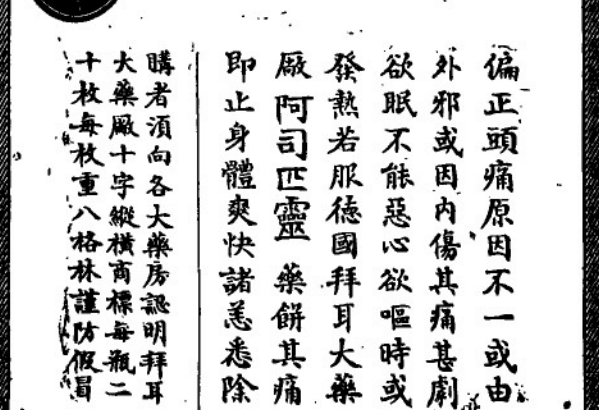 偏正頭痛原因不一或由
外邪或因内傷其痛甚劇
欲眠不能惡心欲嘔時或
發熱若服德國拜耳大藥
廠阿司匹靈藥餅其痛
即止身體爽快諸恙悉除
購者須向各大藥房認明拜耳
大藥廠十字縱横商標每瓶二
十枚每枚重八格林謹防假冒